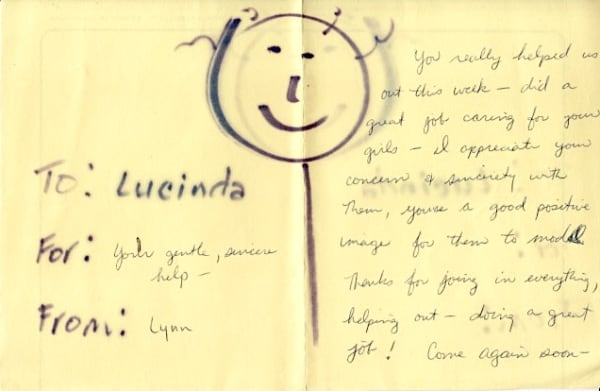 To: Lucinda
For: Your gentle, sincere
help —
From: Lynn
You really helped us
out this week — did a
great job caring for your
girls — I appreciate your
concern & sincerity with
them, youre a good positive
image for them to model
Thanks for joing in everything,
helping out — doing a great
job! Come again soon—